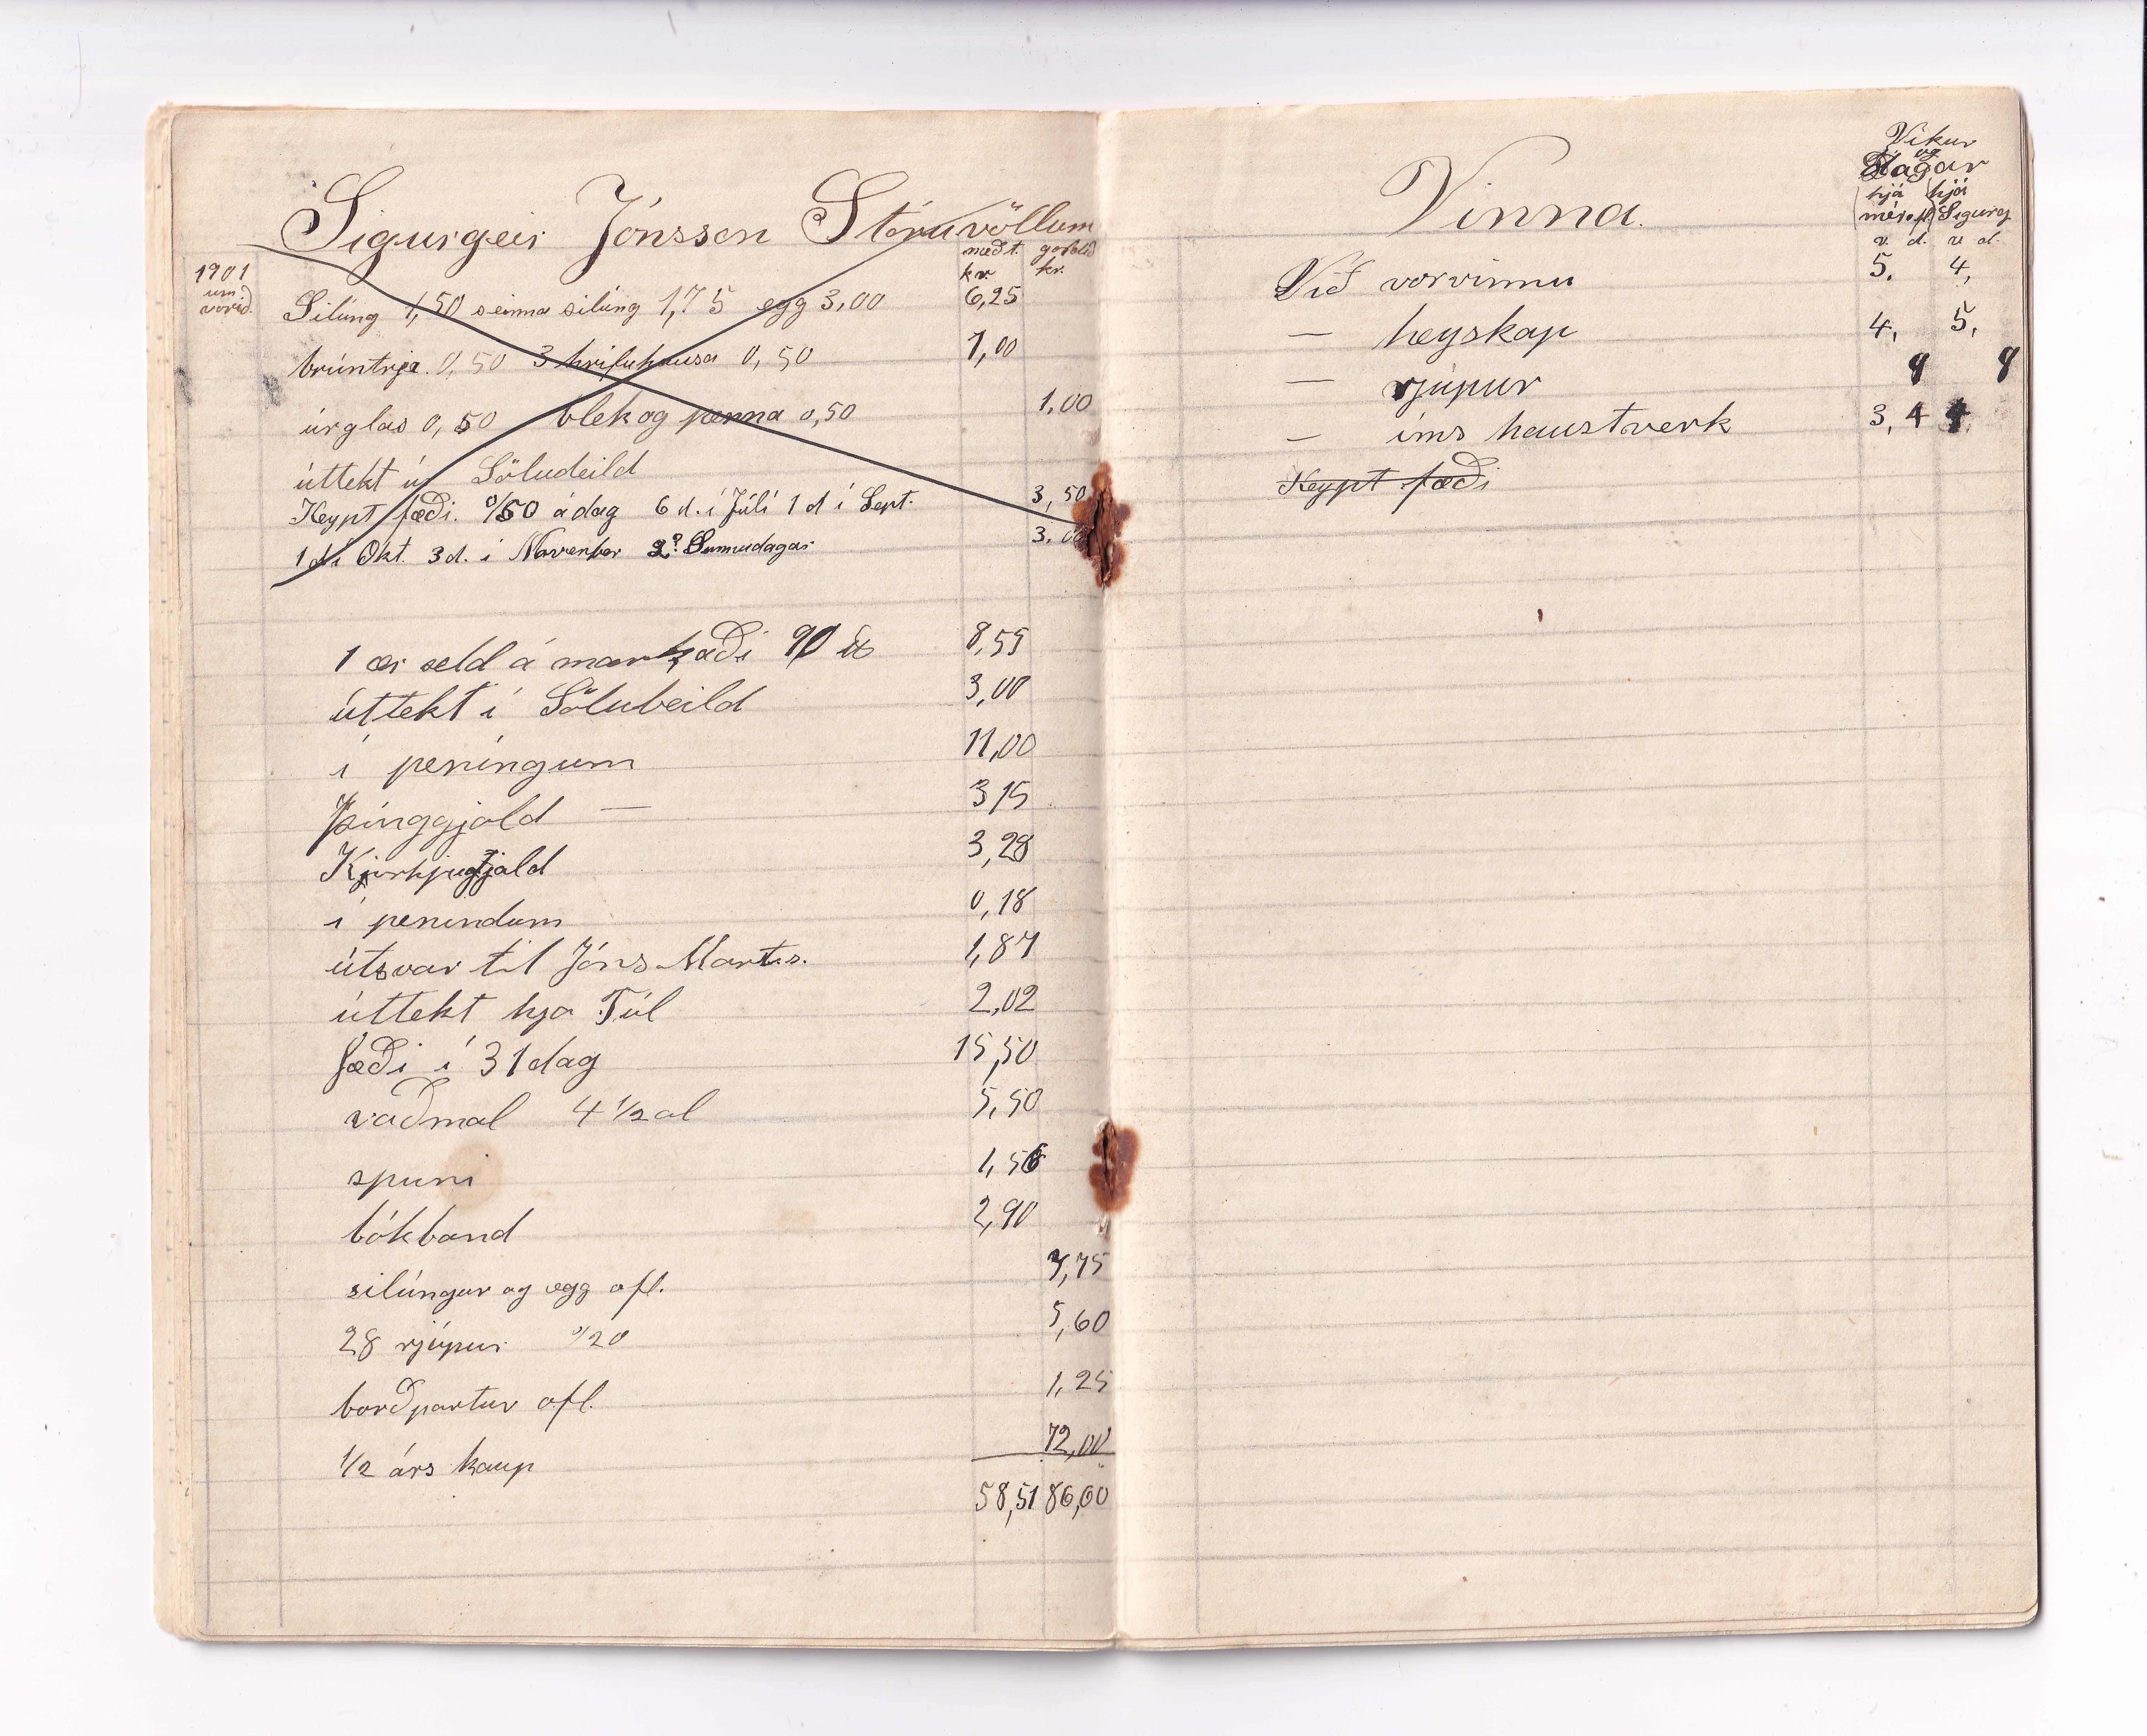 Sigurgeir Jónsson Stóruvöllum
1901
um
vorið.
kr. kr.
Silúng 1,50 seinna silúng 1,75 egg 3,00 6,25
brúntrje. 0,50 3 hrífuhausa 0,50 1,00
úrglas 0,50 blek og penna 0,50 1,00
úttekt úr Söludeild 3,50
Keypt fæði. 0/50 á dag 6 d. í Júlí 1 d í Sept.
1 d í Okt. 3 d. í November 2? Sunnudagar 3.00
1 ær seld á markaði 90 ℔ 8,55
úttekt í Söludeild 3,00
í peníngum 11,00
Þínggjald — 3,15
Kjirkjugjald 3,28
í penindum 0,18
útsvar til Jóns Mart.s. 1,87
úttekt hja Túl 2,02
fæði í 31 dag 15,50
vaðmal 4 1/2 al 5,50
spuni 1,56
bókband 2,90
silúngur og egg ofl. 3,75
28 rjúpur 0/20 5,60
borðpartur ofl. 1,25
1/2 árs kaup 72,00
58,51 86,60
Vinna.
Vikur
og
Dagar
hjá hjá
mér Sigurg
v. d. v. d.
Við vorvinnu 5. 4,
— heyskap 4, 5,
— rjúpur 9 9
— íms haustverk 3, 4 4
Keypt fæði